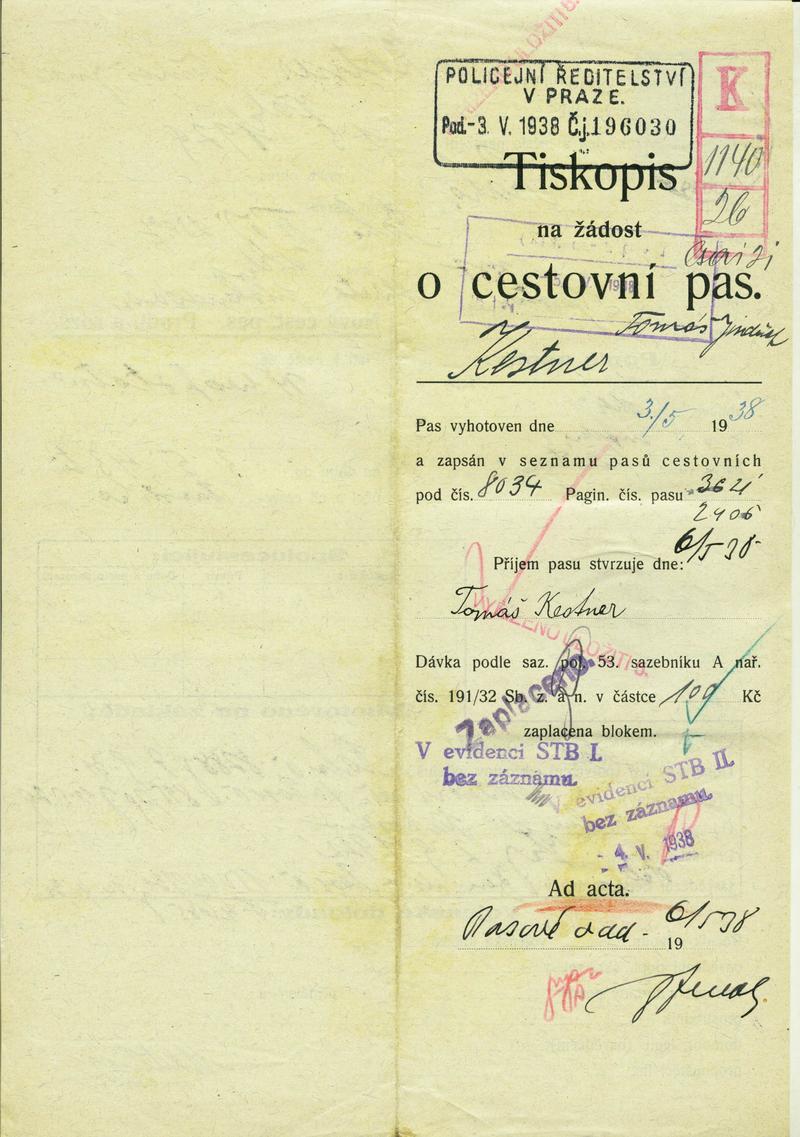 POLICEJNÍ ŘEDITELSTVÍ
V PRAZE.
Pod.-3. V. 1938 Č.j.196030
K
1140
26
Tiskopis
na žádost
o cestovní pas.
Tomáš Jindřich
Kestner
Pas vyhotoven dne 3./5. 1938
a zapsán v seznamu pasů cestovních
pod čís. 8034 Pagin. čís. pasu 3621
2406
6/5 38
Příjem pasu stvrzuje dne:
Tomáš Kestner
Dávka podle saz. pol. 53. sazebníku A nař.
čís. 191/32 Sb. z. a n. v částce 100 Kč
Zaplaceno.
zaplacena blokem.
V evidenci STB I.
bez záznamu.
V evidenci STB II.
bez záznamu
- 4. V. 1938
Ad acta.
Pasové odd - 6/5 38
19